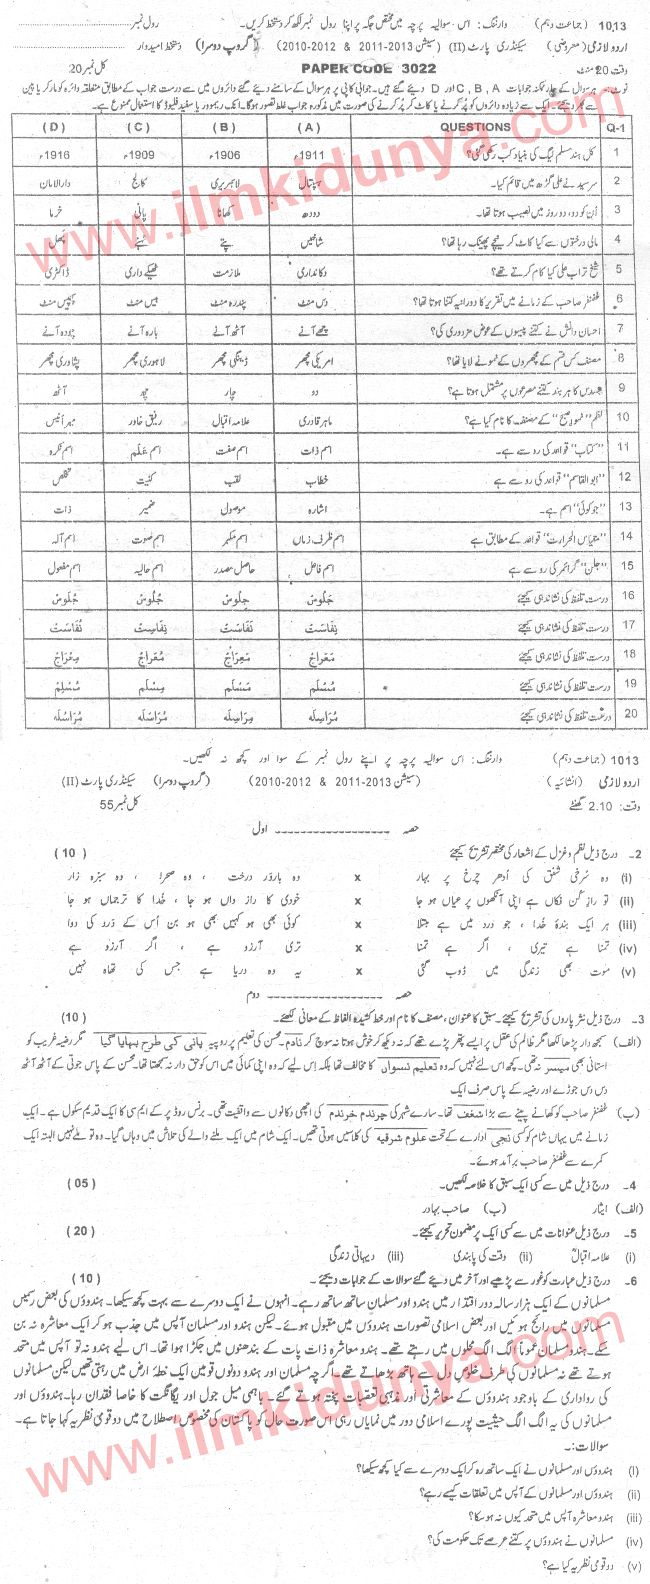 1013 (جماعت دہم) وارننگ: اس سوالیہ پرچہ میں مختص جگہ پر اپنا رول نمبر لکھ کر دستخط کریں۔ رول نمبر
اردو لازمی (معروضی) سیکنڈری پارٹ (II) (سیشن 2013-2011 & 2012-2010) (گروپ دوسرا) دستخط امیدوار
وقت 20 منٹ PAPER CODE 3022 کل نمبر 20
نوٹ: ہر سوال کے چار ممکنہ جوابات A ، B ، C اور D دیئے گئے ہیں۔ جوابی کاپی پر ہر سوال کے سامنے دیئے گئے دائروں میں سے درست جواب کے مطابق متعلقہ دائرہ کو مارکر یا پین
سے بھر دیجئے۔ ایک سے زیادہ دائروں کو پُر کرنے یا کاٹ کر پُر کرنے کی صورت میں مذکورہ جواب غلط تصور ہوگا۔ انک ریموور یا سفید فلیوڈ کا استعمال ممنوع ہے۔
Q-1 QUESTIONS (A) (B) (C) (D)
1 کل ہند مسلم لیگ کی بنیاد کب رکھی گئی؟ 1911ء 1906ء 1909ء 1916ء
2 سرسید نے علی گڑھ میں قائم کیا۔ ہسپتال لائبریری کالج دارالامان
3 اُن کو دو، دو روز میں نصیب ہوتا تھا۔ دودھ کھانا پانی خرما
4 مالی درختوں سے کیا کاٹ کر نیچے پھینک رہا تھا؟ شاخیں پتے ٹہنے پھل
5 شیخ تراب علی کیا کام کرتے تھے؟ دکانداری ملازمت ٹھیکے داری ڈاکٹری
6 غضنفر صاحب کے زمانے میں تقریر کا دورانیہ کتنا ہوتا تھا؟ دس منٹ پندرہ منٹ بیس منٹ پچیس منٹ
7 احسان دانش نے کتنے پیسوں کے عوض مزدوری کی؟ چھے آنے آٹھ آنے بارہ آنے چودہ آنے
8 مصنف کس قسم کے مچھروں کے نمونے لایا تھا؟ امریکی مچھر ڈینگی مچھر لاہوری مچھر پشاوری مچھر
9 مسدس کا ہر بند کتنے مصرعوں پر مشتمل ہوتا ہے؟ دو چار چھ آٹھ
10 نظم "نمودِ صبح" کے مصنف کا نام کیا ہے؟ ماہر قادری علامہ اقبال رفیق خاور میر انیس
11 "کتاب" قواعد کی رو سے ہے۔ اسم ذات اسم صفت اسم عَلَم اسم نکرہ
12 "ابوالقاسم" قواعد کی رو سے ہے خطاب لقب کنیت تخلص
13 "جو کوئی" اسم ہے۔ اشارہ موصول ضمیر ذات
14 "مقیاس الحرارت" قواعد کے مطابق ہے اسم ظرف زماں اسم مکبر اسم صوت اسم آلہ
15 "جلن" گرائمر کی رو سے ہے اسم فاعل حاصل مصدر اسم حالیہ اسم مفعول
16 درست تلفظ کی نشاندہی کیجئے جَلُوسْ جِلُوسْ جُلُوسْ جُلُوسْ
17 درست تلفظ کی نشاندہی کیجئے نِفَاسَتْ نَفَاسَتْ نَفَاسِتْ نُفَاسَتْ
18 درست تلفظ کی نشاندہی کیجئے مَعْرَاجْ مَعِرَاجْ مُعْرَاجْ مِعْرَاجْ
19 درست تلفظ کی نشاندہی کیجئے مُسْلَم مَسْلَم مِسْلَم مُسْلِم
20 درست تلفظ کی نشاندہی کیجئے مُرَاسِلَہ مِرَاسِلَہ مَرَاسَلَہ مُرَاسَلَہ
1013 (جماعت دہم) وارننگ: اس سوالیہ پرچہ پر اپنے رول نمبر کے سوا اور کچھ نہ لکھیں۔
اردو لازمی (انشائیہ) (سیشن 2013-2011 & 2012-2010) (گروپ دوسرا) سیکنڈری پارٹ (II)
وقت: 2.10 گھنٹے کل نمبر 55
حصہ ---------- اول
2۔ درج ذیل نظم و غزل کے اشعار کی مختصر تشریح کیجئے (10)
(i) وہ سُرخی شفق کی اُدھر چرخ پر بہار x وہ بارور درخت ، وہ صحرا ، وہ سبزہ زار
(ii) تو رازِ کُن فکاں ہے اپنی آنکھوں پر عیاں ہو جا x خودی کا راز داں ہو جا ، خُدا کا ترجماں ہو جا
(iii) ہر ایک بندۂ خُدا ، جو درد میں ہے مبتلا x کوئی بھی ہو کہیں بھی ہو بن اُس کے دَرد کی دوا
(iv) تمنا ہے تیری ، اگر ہے تمنا x تری آرزو ہے ، اگر آرزو ہے
(v) موت بھی زندگی میں ڈوب گئی x یہ وہ دریا ہے جس کی تھاہ نہیں
حصہ ---------- دوم
3۔ درج ذیل نثر پاروں کی تشریح کیجئے۔ سبق کا عنوان، مصنف کا نام اور خط کشیدہ الفاظ کے معانی لکھئے۔ (10)
(الف) سمجھدار پڑھا لکھا مگر ظالم کی عقل پر ایسے پتھر پڑے تھے کہ نہ دیکھ کر خوش ہوتا نہ سوچ کر نادم۔ محسن کی تعلیم پر روپیہ پانی کی طرح بہایا گیا مگر رضیہ غریب کو
استانی بھی میسر نہ تھی۔ کچھ اس لئے نہیں کہ وہ تعلیم نسواں کا مخالف تھا بلکہ اِس لیے کہ وہ اپنی کمائی میں اس کو حق دار نہ سمجھتا تھا۔ محسن کے پاس جوتی کے آٹھ آٹھ
دس دس جوڑے اور رضیہ کے پاس صرف ایک
(ب) غضنفر صاحب کو کھانے پینے سے بڑا شغف تھا۔ سارے شہر کی چرندم خرندم کی اچھی دکانوں سے واقفیت تھی۔ برنس روڈ پر کے ایم سی کا ایک قدیم سکول ہے۔ ایک
زمانے میں یہاں شام کو کسی نجی ادارے کے تحت علوم شرقیہ کی کلاسیں ہوتی تھیں۔ ایک شام میں ایک ملنے والے کی تلاش میں وہاں گیا۔ وہ تو ملے نہیں البتہ ایک
کمرے سے غضنفر صاحب برآمد ہوئے۔
4۔ درج ذیل میں سے کسی ایک سبق کا خلاصہ لکھیں۔ (05)
(الف) ایثار (ب) صاحب بہادر
5۔ درج ذیل عنوانات میں سے کسی ایک پر مضمون تحریر کیجئے۔ (20)
(i) علامہ اقبالؒ (ii) وقت کی پابندی (iii) دیہاتی زندگی
6۔ درج ذیل عبارت کو غور سے پڑھیے اور آخر میں دیئے گئے سوالات کے جوابات دیجئے۔ (10)
مسلمانوں کے ایک ہزار سالہ دورِ اقتدار میں ہندو اور مسلمان ساتھ ساتھ رہے۔ انہوں نے ایک دوسرے سے بہت کچھ سیکھا۔ ہندوؤں کی بعض رسمیں
مسلمانوں میں رائج ہوئیں اور بعض اسلامی تصورات ہندوؤں میں مقبول ہوئے۔ لیکن ہندو اور مسلمان آپس میں جذب ہو کر ایک معاشرہ نہ بن
سکے۔ ہندو مسلمان عموماً الگ الگ محلوں میں رہتے تھے۔ ہندو معاشرہ ذات پات کے بندھنوں میں جکڑا ہوا تھا۔ اس لیے ہندو نہ تو آپس میں متحد
ہوتے تھے نہ مسلمانوں کی طرف خلوصِ دل سے ہاتھ بڑھاتے تھے۔ اگرچہ مسلمان اور ہندو دونوں قومیں ایک خطۂ ارض میں رہتی تھیں لیکن مسلمانوں
کی رواداری کے باوجود ہندوؤں کے معاشرتی اور مذہبی تعصبات پختہ ہوتے گئے۔ باہمی میل جول اور یگانگت کا خاصا فقدان رہا۔ ہندوؤں اور
مسلمانوں کی یہ الگ الگ حیثیت پورے اسلامی دور میں نمایاں رہی اس صورت حال کو پاکستان کی مخصوص اصطلاح میں دو قومی نظریہ کہا جاتا ہے۔
سوالات:۔
(i) ہندوؤں اور مسلمانوں نے ایک ساتھ رہ کر ایک دوسرے سے کیا کچھ سیکھا؟
(ii) ہندوؤں اور مسلمانوں کے آپس میں تعلقات کیسے رہے؟
(iii) ہندو معاشرہ آپس میں متحد کیوں نہ ہو سکا؟
(iv) مسلمانوں نے ہندوؤں پر کتنے عرصے تک حکومت کی؟
(v) دو قومی نظریہ کیا ہے؟
www.ilmkidunya.com
www.ilmkidunya.com